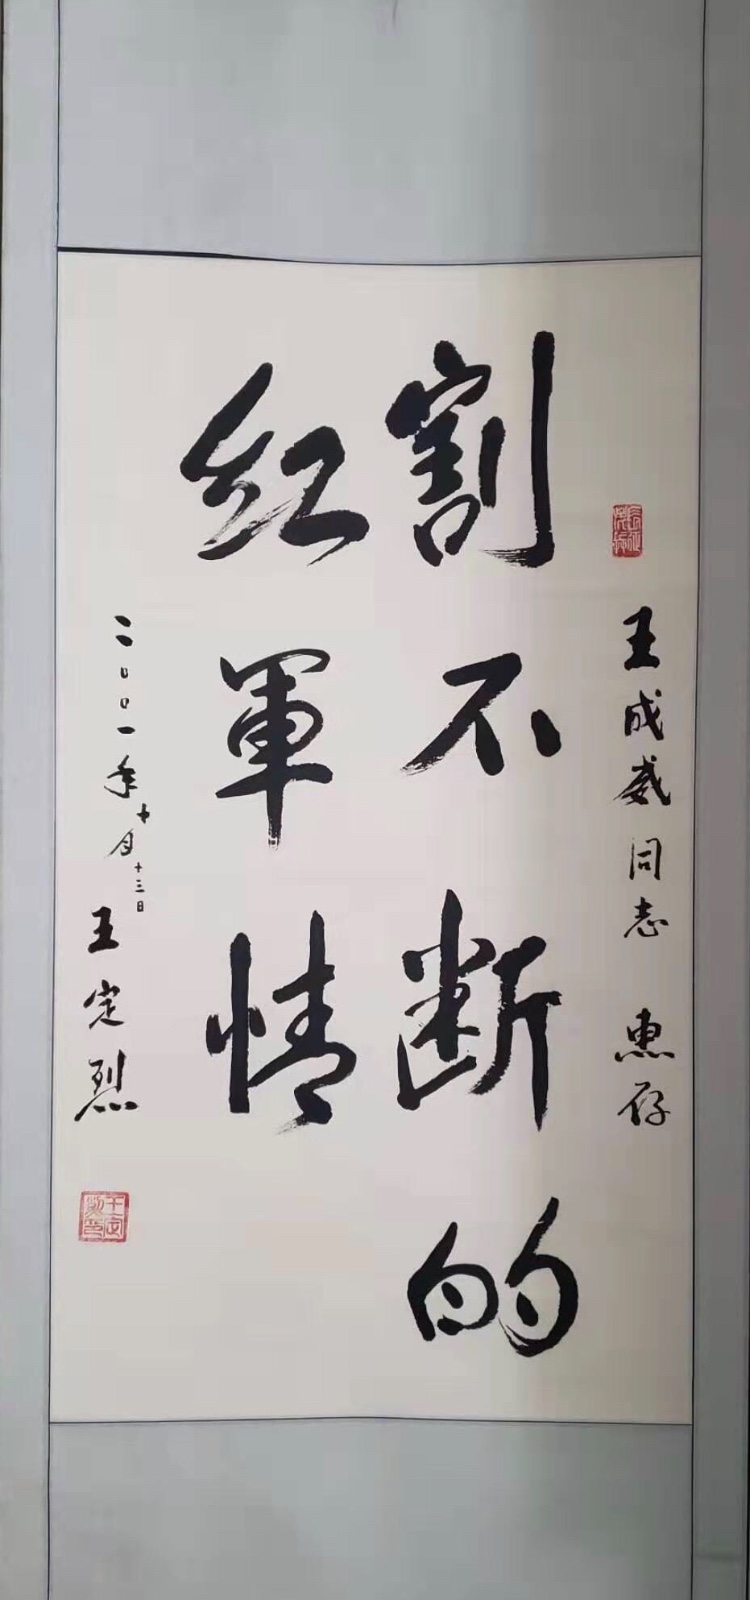 王成威同志 惠存
割不断的
紅軍情
二〇〇一年十月十三日
王定烈